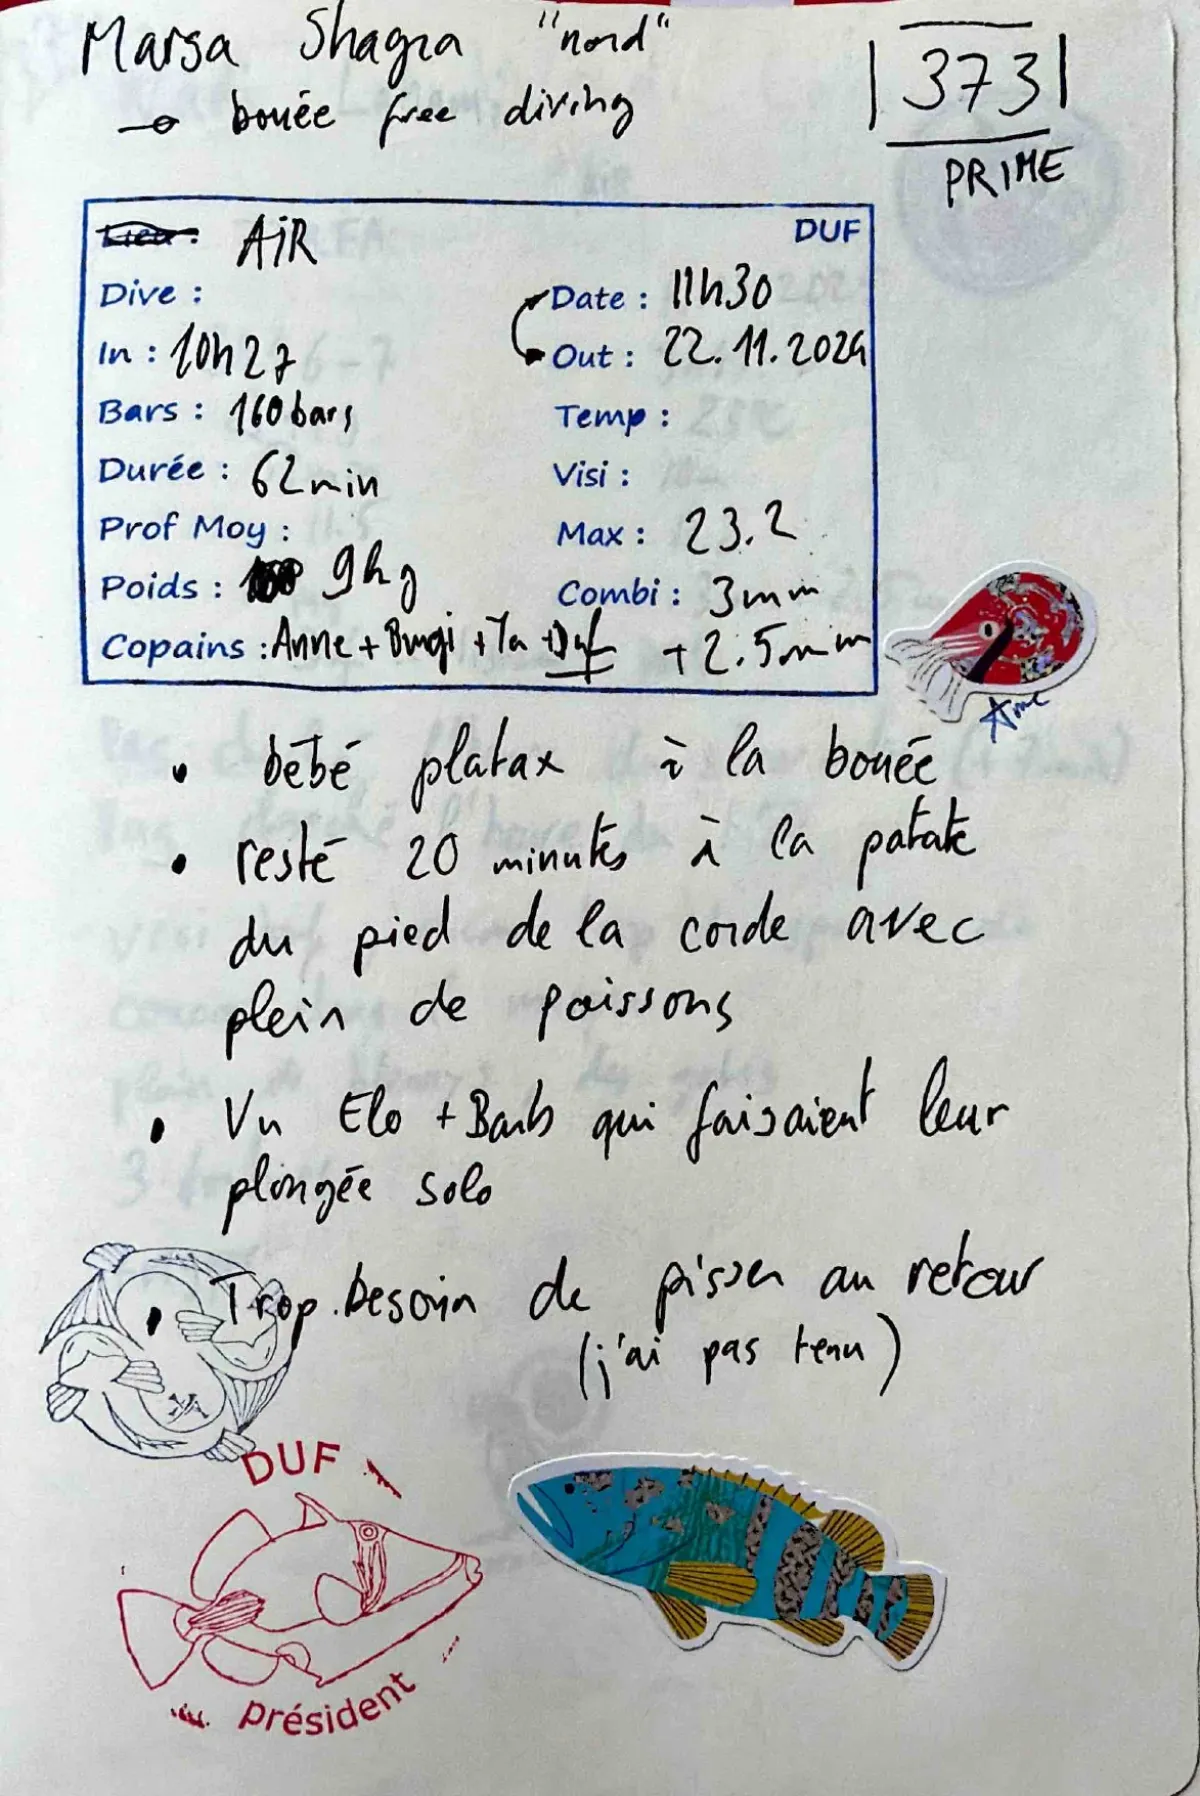 Marsa Shagra "nord"
bouée free diving
373
PRIME
Lieu : AiR
DUF
Dive :
Date : 11h30
In : 10h27
Out : 22.11.2024
Bars : 160 bars
Temp :
Durée : 62min
Visi :
Prof Moy :
Max : 23.2
Poids : 9kg
Combi : 3mm
Copains : Anne + Bungi + Ta + Duf
+2.5mm
Anne
• bébé platax à la bouée
• resté 20 minutes à la patate
du pied de la corde avec
plein de poissons
• Vu Elo + Barb qui faisaient leur
plongée solo
• Trop besoin de pisser au retour
(j'ai pas tenu)
DUF
président